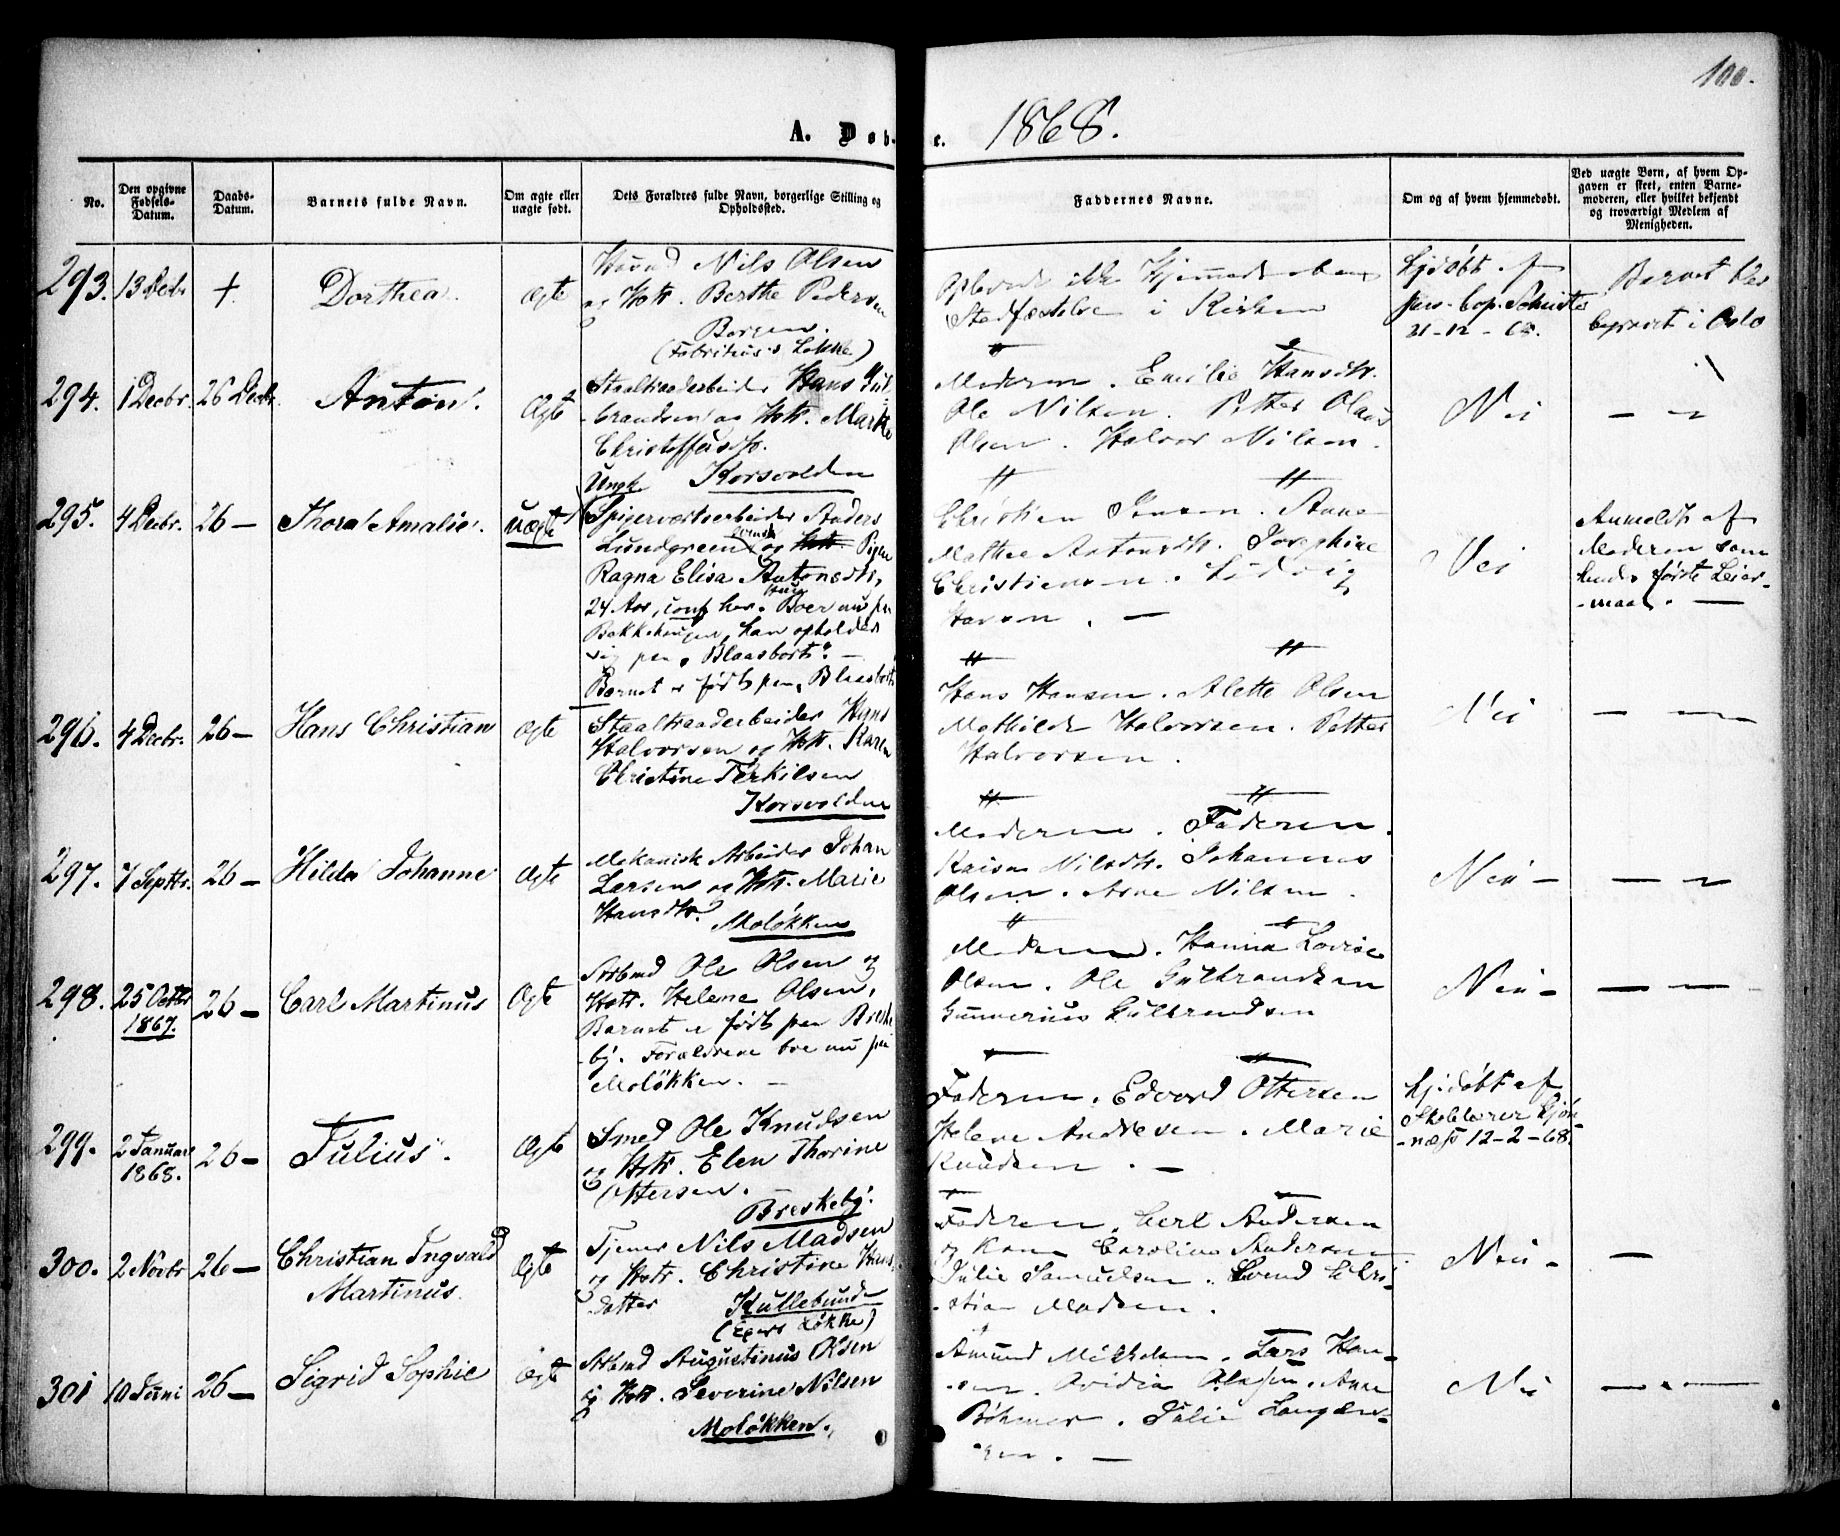 100.
A. Døb-
e. 1868.
No.
Den opgivne Fødsels-Datum.
Daabs-Datum.
Barnets fulde Navn.
Om ægte eller uægte født.
Dets Forældres fulde Navn, borgerlige Stilling og Opholdssted.
Faddernes Navne.
Om og af hvem hjemmedøbt.
Ved uægte Børn, af hvem Opgaven er skeet, enten Barnemoderen, eller hvilket bekjendt og troværdigt Medlem af Menigheden.
293. 13 Decbr + Dorthea. Ægte
Nils Olsen
og Hstr. Berthe Pedersen
Borgen.
(Fabritius's Løkke)
Oplevede ikke Hjemmedaabens
Stadfæstelse i Kirken
hjdøbt af
21-12-68.
Barnet blev
begravet i Oslo
294. 1 Decbr. 26 Decbr. Anton. Ægte
Staaltraadarbeider Hans Gul-
brandsen og Hstr. Marthe
Christoffersdtr.
Korsvolden
Moderen. Emilie Hansdtr.
Ole Nilsen. Petter Olaus
Olsen. Halvor Nilsen.
Nei
295. 4 Decbr. 26 — Thora Amalie. uægte
Ungk.
Spigerværksarbeider Anders
Lundgreen og Hstr. Pigen
Ragna Elisa Antonsdtr,
24 Aar, conf her. Boer nu paa
Bakkehaugen, han opholder
sig paa „Blaasbort". —
Barnet er født paa „Blaasbort
Christian Jensen. Anne
Mathea Antonsdtr. Josephine
Christiensen. Ludvig
Hansen. —
Nei
Anmeldt af
Moderen som
hendes første Leier-
-maal. —
296. 4 Decbr. 26 — Hans Christian Ægte
Staaltraadarbeider Hans
Halvorsen og Hstr. Karen
Christine Terkilsen
Korsvolden
Hans Hansen. Alette Olsen
Mathilde Halvorsen. Petter
Halvorsen.
Nei
297. 7 Septbr. 26 — Hilda Johanne Ægte
Mekanisk Arbeider Johan
Larsen og Hstr. Marie
Hansdtr.
Moløkken
Moderen. Faderen.
Kaisa Nilsdtr. Johannes
Olsen. Arne Nilsen.
Nei —
298. 25 Octbr 1867. 26 — Carl Martinus Ægte
Arbmd Ole Olsen og
Hstr. Helene Olsen,
Barnet er født paa Breske
by. Forældrene boe nu paa
Moløkken. —
Moderen. Hanna Lovise
Olsen. Ole Gulbrandsen
Gunnerius Gulbrandsen
Nei —
299. 2 Januar 1868. 26 — Julius. Ægte
Smed Ole Knudsen
og Hstr. Elen Thorine
Ottersen.
Breskeby.
Faderen. Edvard Ottersen
Helene Andresen. Marie
Knudsen. —
hjdøbt af
Skolelærer
12-2-68.
300. 2 Novbr 26 — Christian Ingvald Martinus. Ægte
Tjener Nils Madsen
og Hstr. Christine Hans-
datter Kullebunde
(Egers Løkke)
Faderen. Carl Andersen
og Kone Caroline Andersen
Julie Samuelsen. Svend Chri-
-stian Madsen.
Nei —
301 10 Juni 26 — Sigrid Sophie Ægte
Arbmd Augustinus Olsen
og Hstr. Severine Nilsen
Moløkken.
Amund Mikkelsen. Lars Han-
-sen. Ovidia Olsen. Anne
Böhmer. Julie Langøen-
-sen. —
Nei